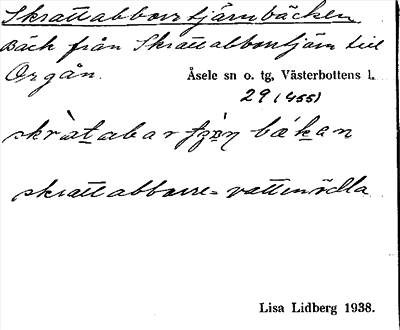 Skrattabborrtjärnbäcken
Bäck från Skrattabborrtjärn till
Orgån. Åsele sn o. tg, Västerbottens l.
29 (455)
skrattabborre = vattenödla
Lisa Lidberg 1938.